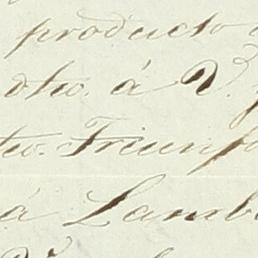 producto
dho. á D.
Triunfo
á Lamb